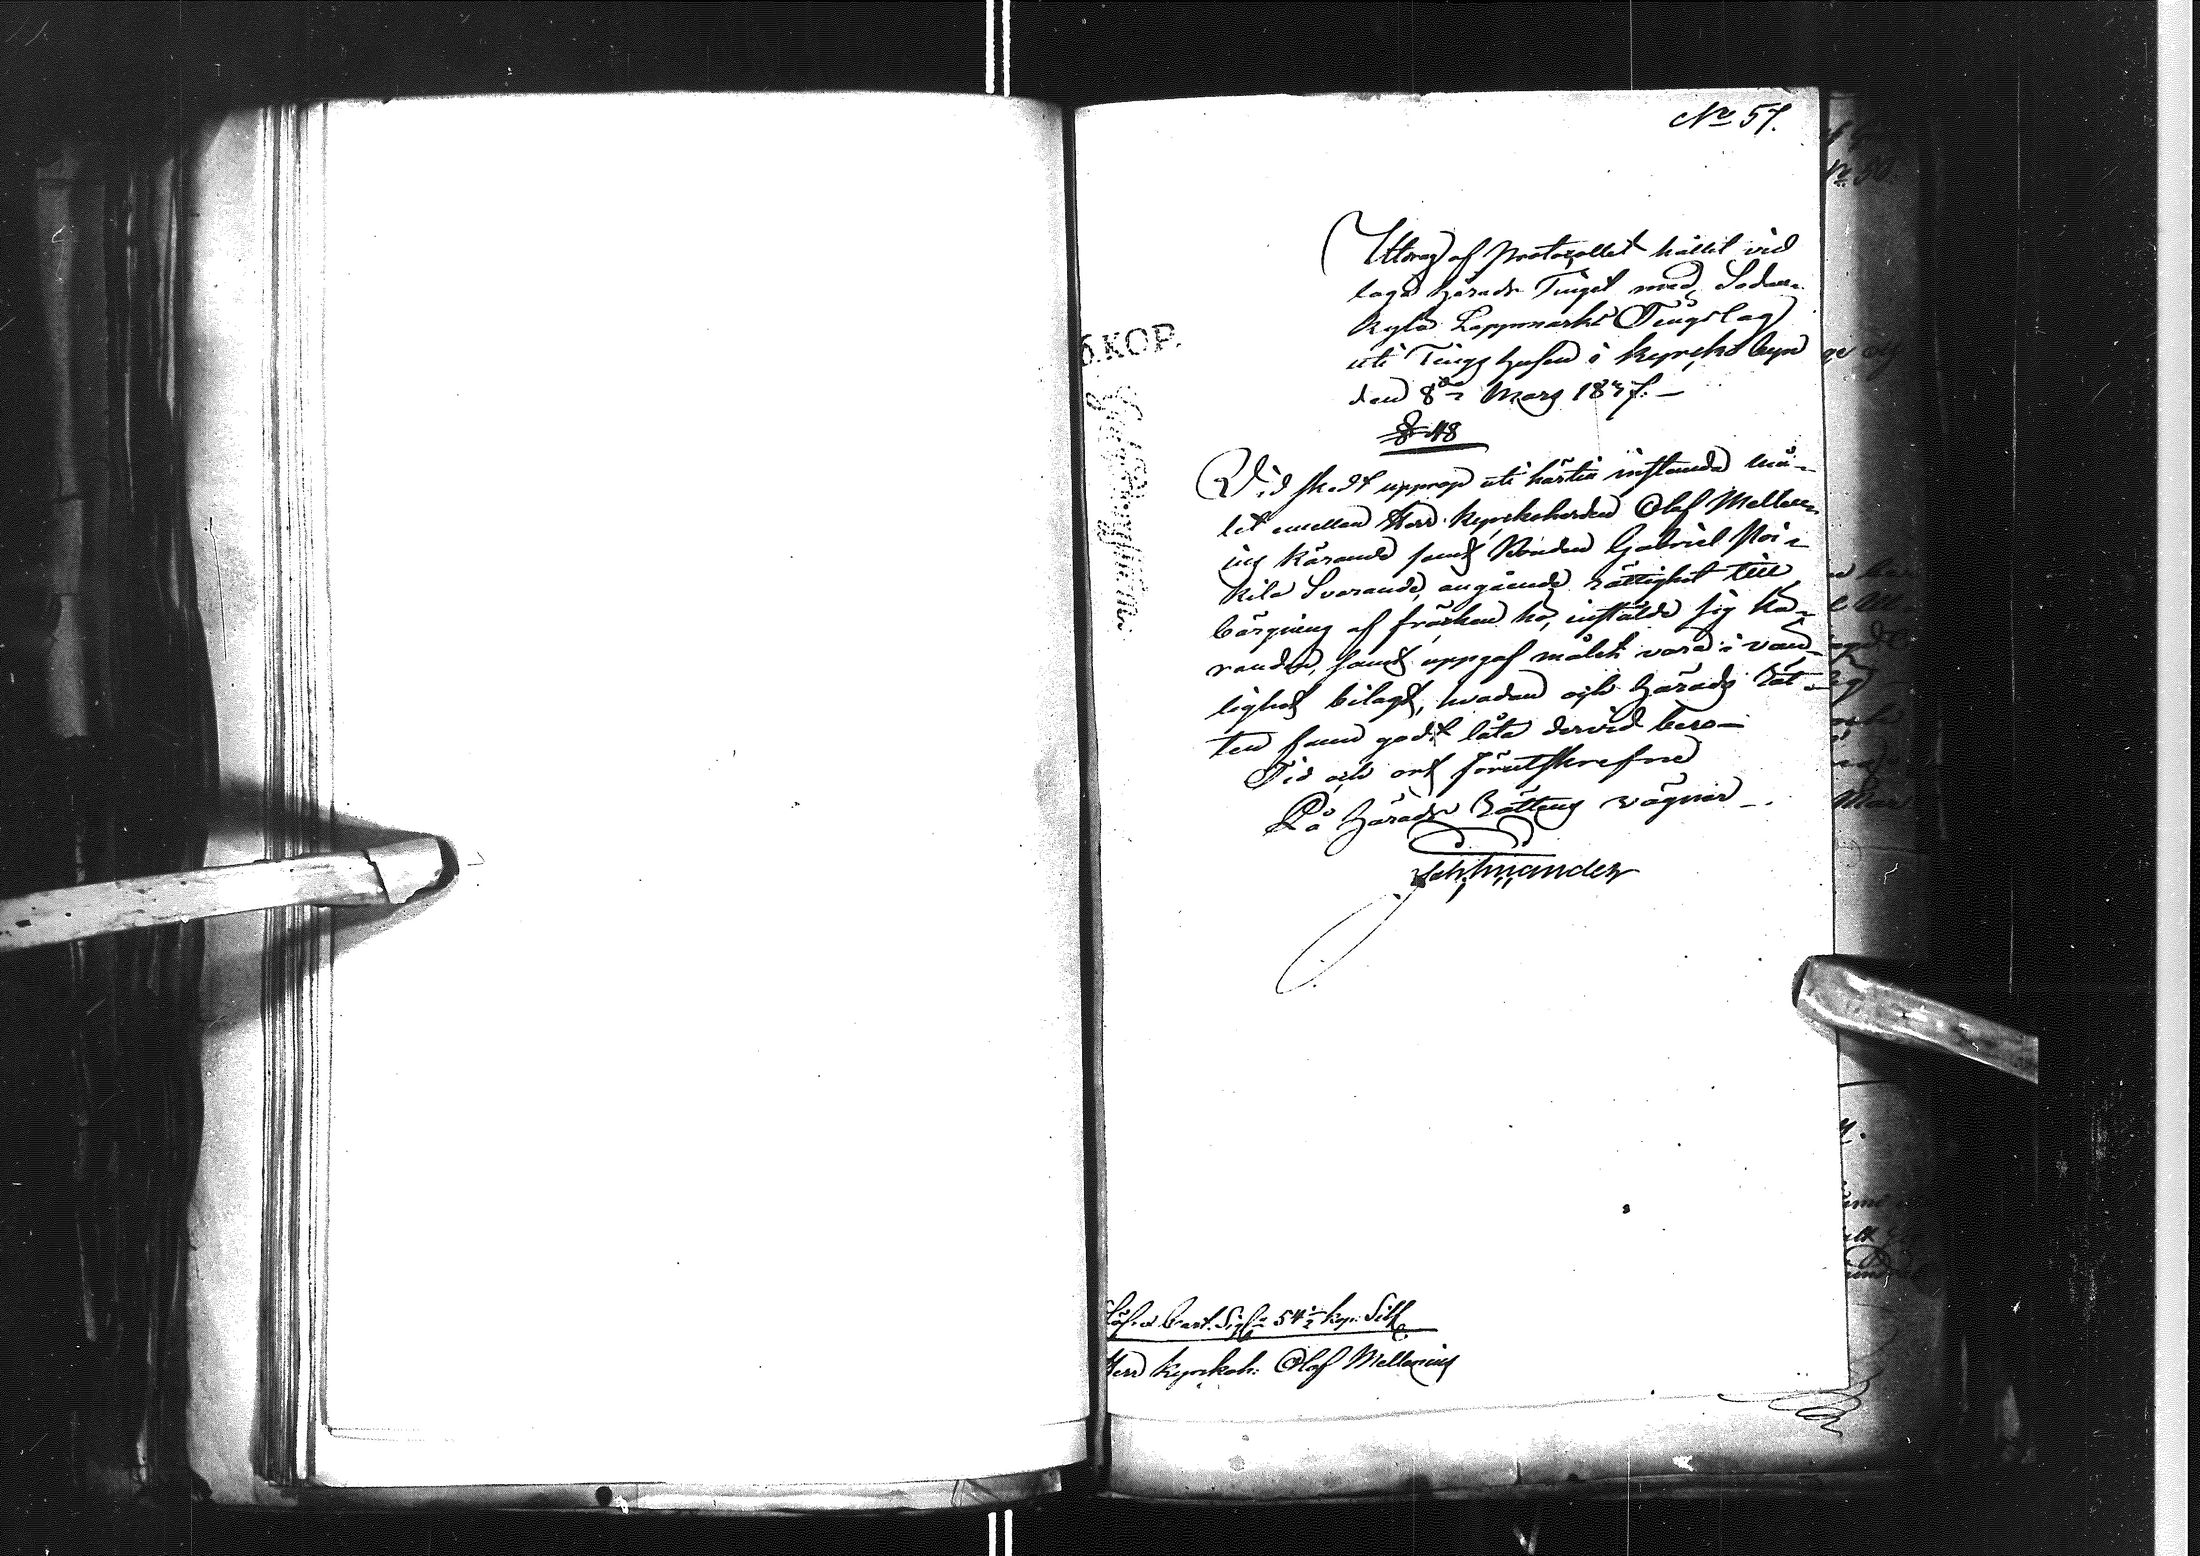 No 57.
Utdrag af Protocollet hållit vid
laga Härads Tinget med Sodan-
kylä Lappmarks Tingslag
uti Tings husen i kyrcko byn
den 8de Mars 1837.
§ 48
Vid skedt upprop uti härtill instämda må-
let emellan Herr kyrckoherden Olof Mellen-
ius kärande samt Bonden Gabriel Poi-
kila Svarande, angående rättighet till
bärgning af fräken hö, instälde sig kä-
randen, samt uppgaf målet vara i vän-
lighet bilagt, hvadan och Härads Rät-
ten fann godt låta dervid bero
Tid och ort förutskrefne
På Härads Rättens vägnar
6.KOP.
54 1/2 kop: Silf.
Herr kyrckoh: Olof Mellenius